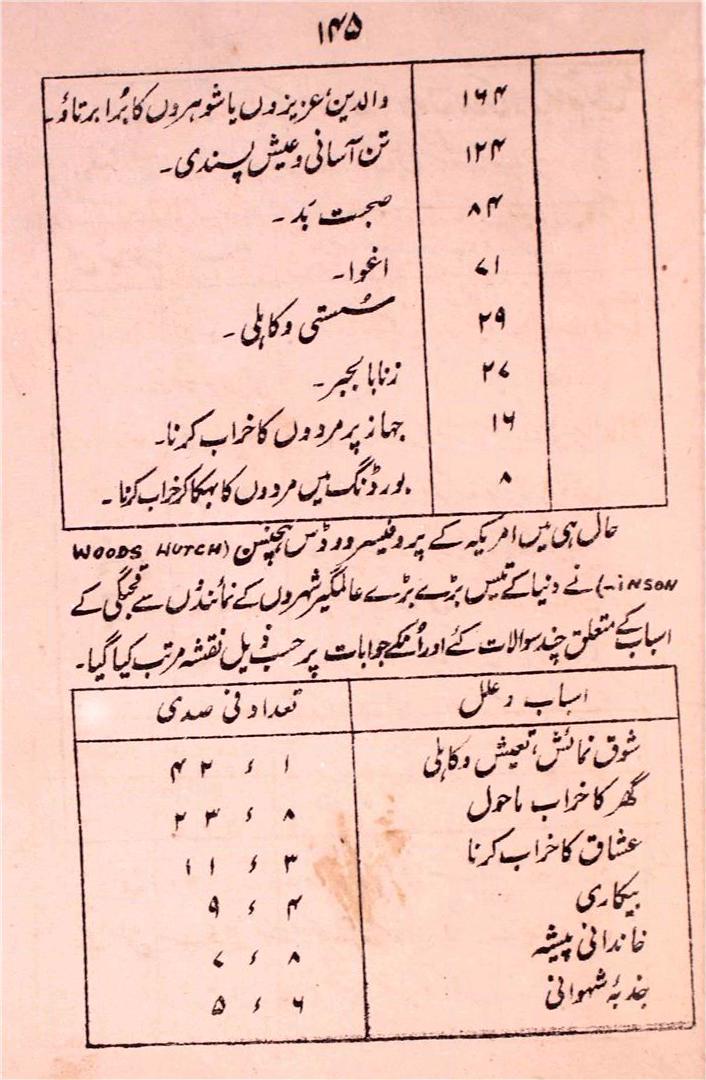 ۱۴۵
۱۶۴ والدین، عزیزوں یا شوہروں کا بُرا برتاؤ۔
۱۲۴ تن آسانی و عیش پسندی۔
۸۴ صحبت بَد۔
۷۱ اغوا۔
۲۹ سُستی و کاہلی۔
۲۷ زنا بالجبر۔
۱۶ جہاز پر مردوں کا خراب کرنا۔
۸ بورڈنگ میں مردوں کا بہکا کر خراب کرنا۔
حال ہی میں امریکہ کے پروفیسر ووڈس ہچنسن (WOODS HUTCH
-INSON) نے دنیا کے تیس بڑے بڑے عالمگیر شہروں کے نمائندوں سے قحبگی کے
اسباب کے متعلق چند سوالات کئے اور اُنکے جوابات پر حسب ذیل نقشہ مرتب کیا گیا۔
اسباب و علل تعداد فی صدی
شوق نمائش، تعیش و کاہلی ۴۲ء۱
گھر کا خراب ماحول ۲۳ء۸
عشاق کا خراب کرنا ۱۱ء۳
بیکاری ۹ء۴
خاندانی پیشہ ۷ء۸
جذبۂ شہوانی ۵ء۶